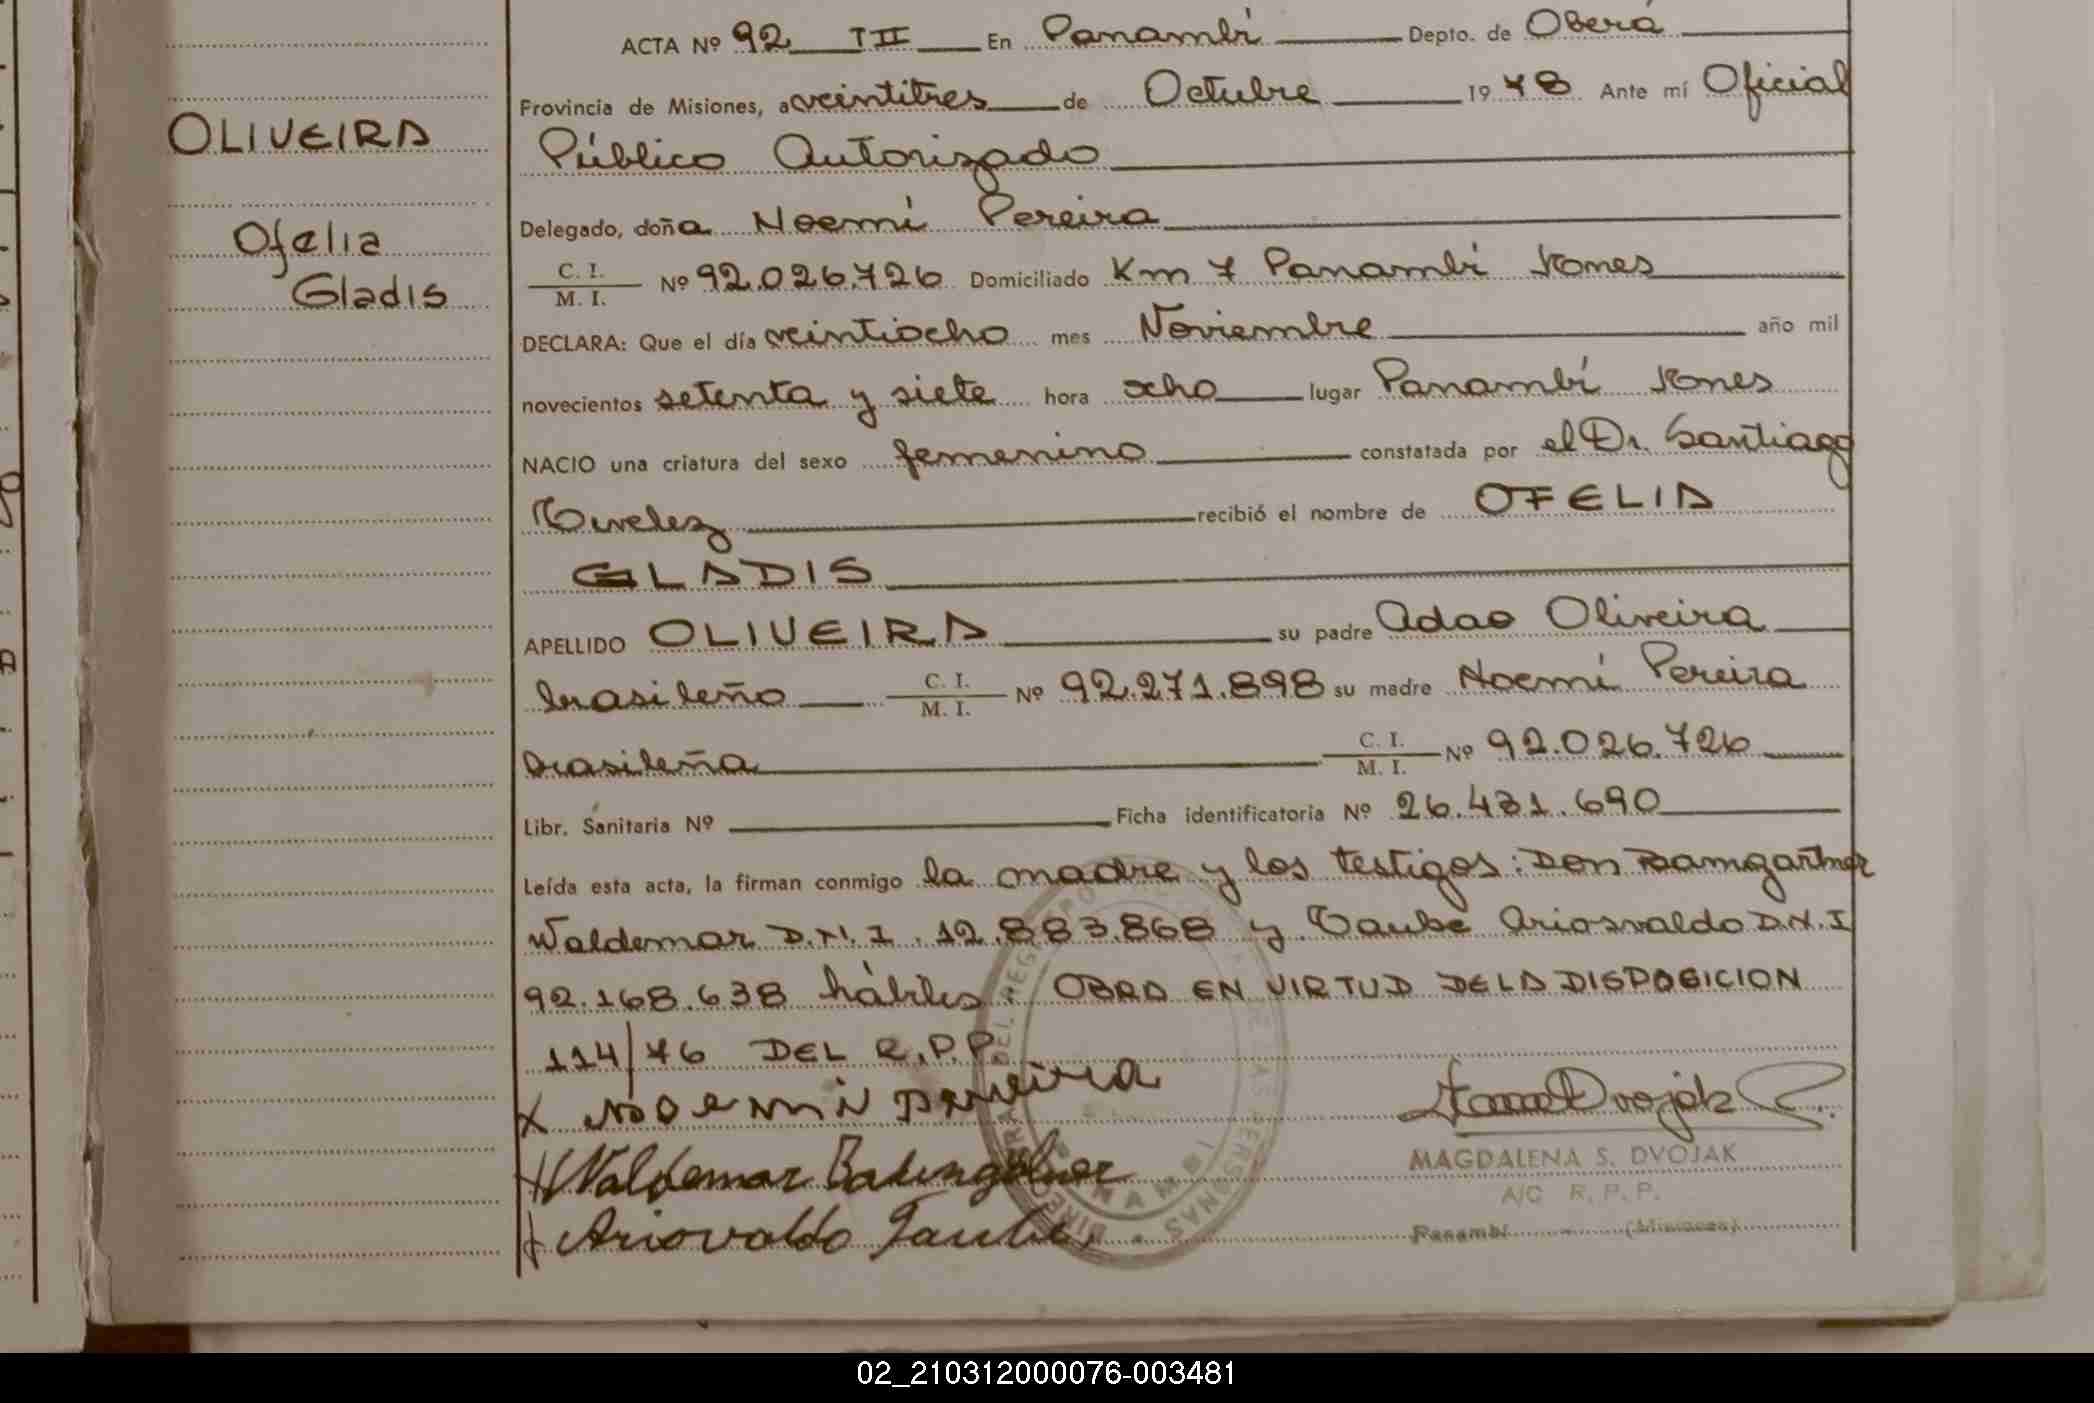 ACTA Nº 92 TII En Panambí Depto. de Oberá
Provincia de Misiones, a veintitres de Octubre 1978 Ante mí Oficial
OLIVEIRA
Público Autorizado
Delegado, doña Noemí Pereira
Ofelia
Gladis
C. I.
M. I.
Nº 92.026.726 Domiciliado Km 7 Panambí Kmes
DECLARA: Que el día veintiocho mes Noviembre año mil
novecientos setenta y siete hora ocho lugar Panambí Kmes
NACIO una criatura del sexo femenino constatada por el Dr. Santiago
recibió el nombre de OFELIA
GLADIS
APELLIDO OLIVEIRA su padre Adao Oliveira
brasileño C. I.
M. I. Nº 92.271.898 su madre Noemí Pereira
brasileña C. I.
M. I. Nº 92.026.726
Libr. Sanitaria Nº Ficha identificatoria Nº 26.431.690
Leída esta acta, la firman conmigo la madre y los testigos: Don Bamgartner
Waldemar D.N.I. 12.883.868 y Taube Ariosvaldo D.N.I
92.168.638 hábiles: OBRA EN VIRTUD DE LA DISPOSICION
114/76 DEL R.P.P.
X Noemi Pereira
Waldemar
Ariovaldo Taube
Dvojak
MAGDALENA S. DVOJAK
A/C R. P. P.
Panambí - (Misiones)
02_210312000076-003481